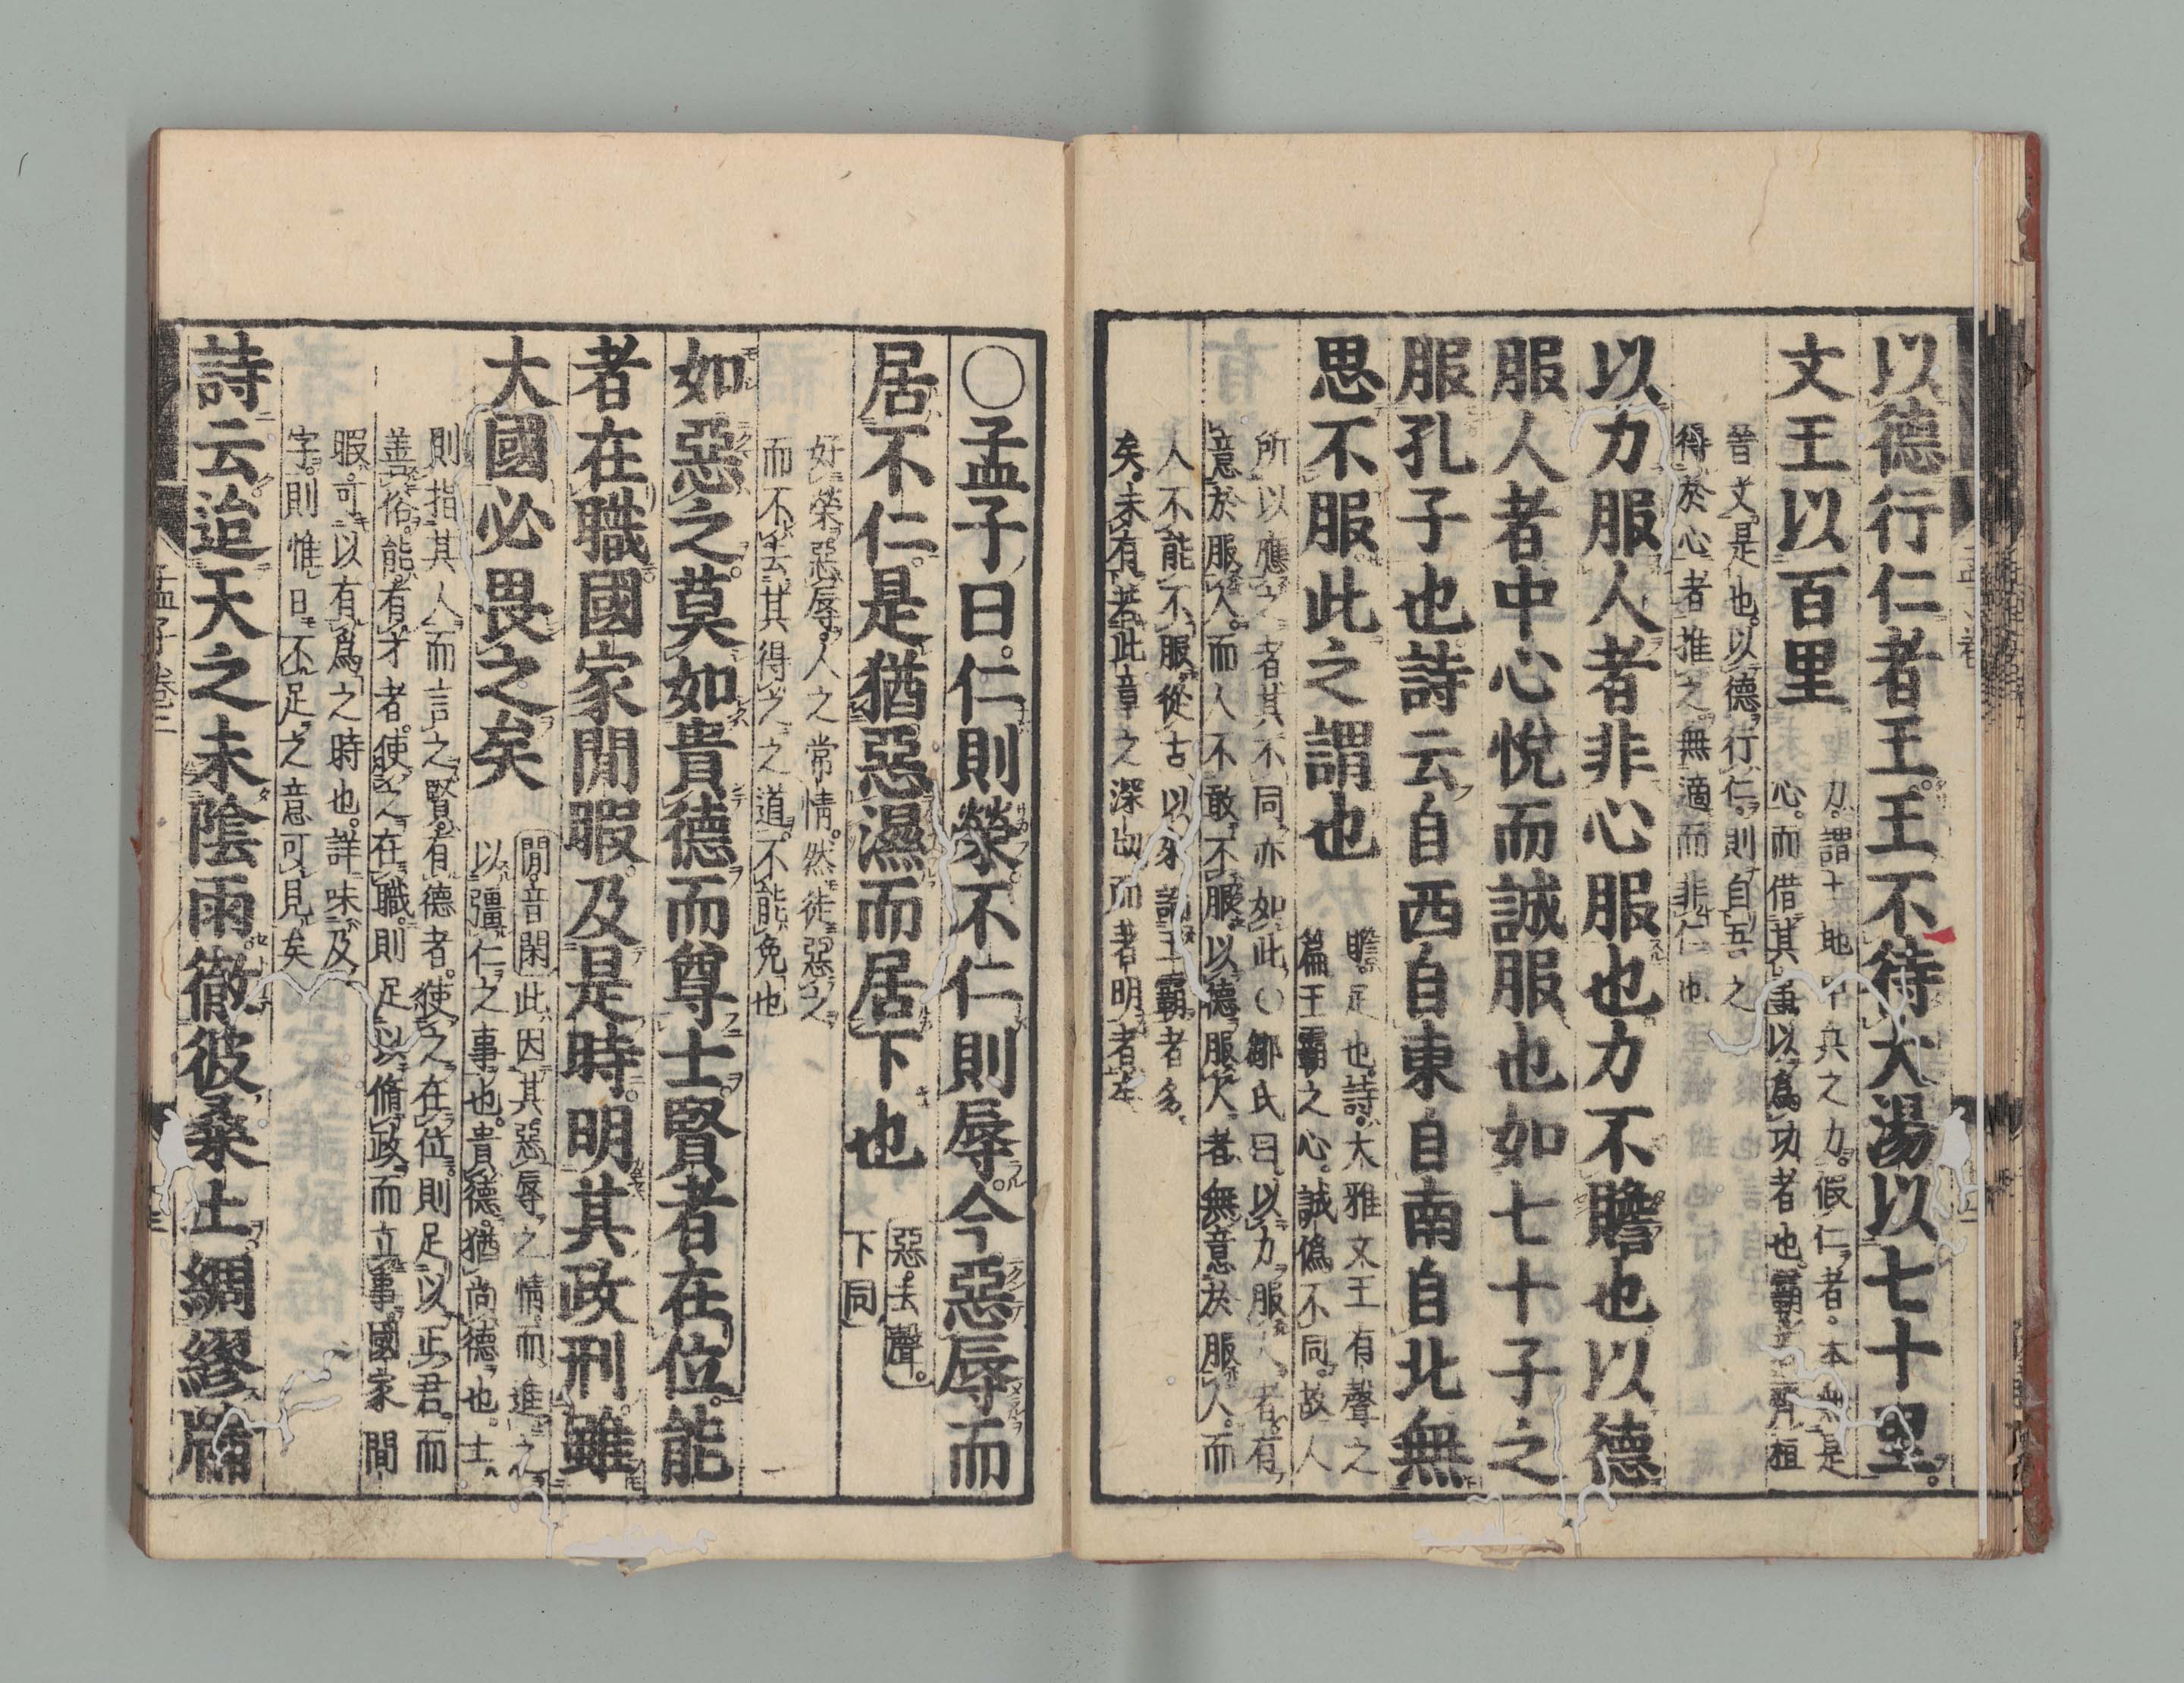 以德行仁者王。王不待大湯以七十里。
文王以百里
力。謂土地甲兵之力。假仁者。本無是
心。而借其事以爲功者也。霸若齊桓
晉文是也。以德行仁。則自吾之
得於心者推之。無適而非仁也。
以力服人者非心服也力不贍也以德
服人者中心悅而誠服也如七十子之
服孔子也詩云自西自東自南自北無
思不服此之謂也
贍。足也。詩。大雅文王有聲之
篇王霸之心。誠僞不同。故人
所以應之者其不同亦如此。○鄒氏曰。以力服人者。有
意於服人。而人不敢不服。以德服人者。無意於服人。而
人不能不服。從古以來論王霸者多
矣。未有若此章之深切而著明者
○孟子曰。仁則榮。不仁則辱。今惡辱而
居不仁。是猶惡濕而居下也
惡。去聲。
下同
好榮惡辱。人之常情。然徒惡之
而不去其得之之道。不能免也
如惡之。莫如貴德而尊士。賢者在位。能
者在職。國家閒暇。及是時。明其政刑。雖
大國必畏之矣
閒。音閑 此因其惡辱之情。而進之
以彊仁之事也。貴德。猶尚德也。士、
則指其人而言之。賢。有德者。使之在位。則足以正君。而
善俗。能。有才者。使之在職。則足以脩政。而立事。國家閒
暇。可以有爲之時也。詳味及
字。則惟日不足之意可見矣
詩云。迨天之未陰雨。徹彼桑土。綢繆牖
孟子卷二